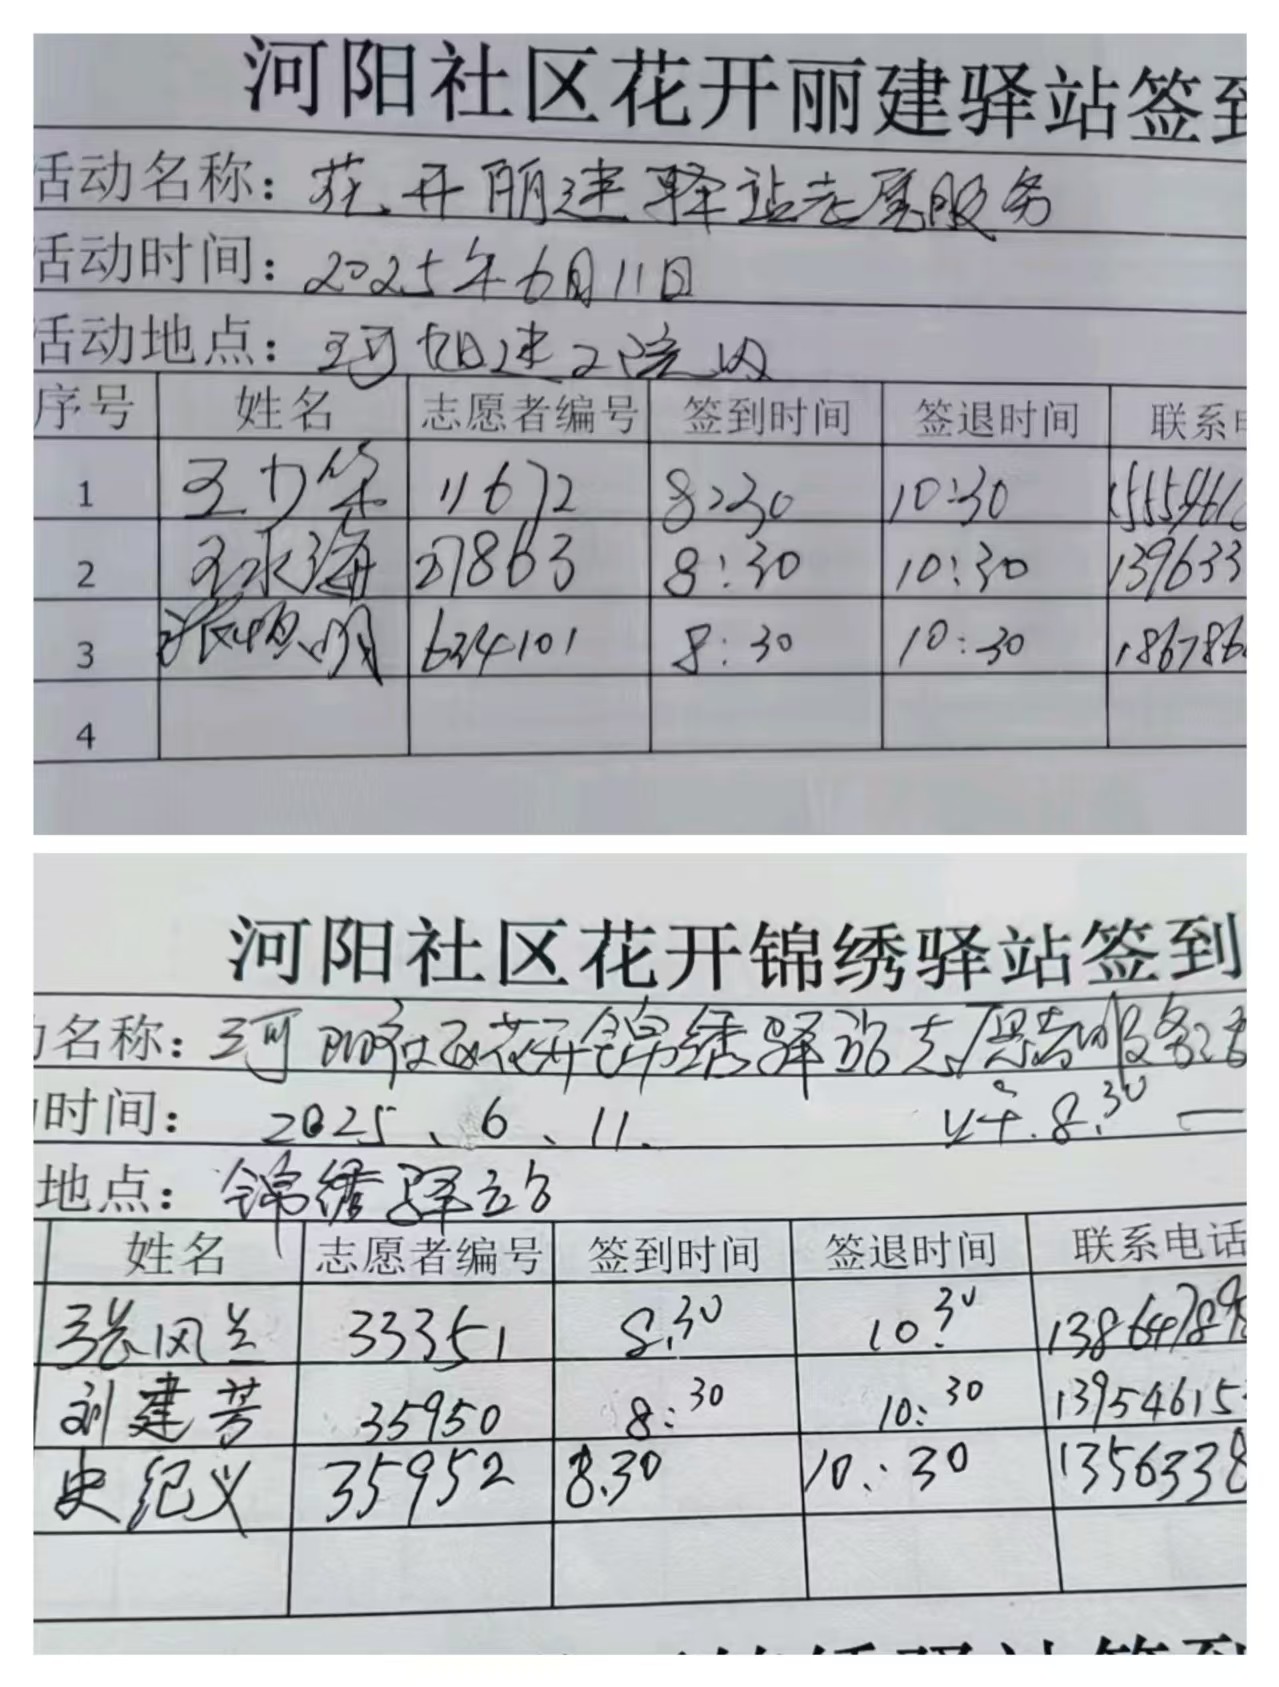 河阳社区花开丽建驿站签到
活动名称：花开丽建驿站志愿服务
活动时间：2025年6月11日
活动地点：河阳建工院内
序号 姓名 志愿者编号 签到时间 签退时间 联系电
1 王力华 11672 8:30 10:30 1555461
2 王永海 27863 8:30 10:30 139633
3 张明 624101 8:30 10:30 186786
4
河阳社区花开锦绣驿站签到
动名称：河阳社区花开锦绣驿站志愿者服务活
时间：2025、6、11. 上午.8:30 一
地点：锦绣驿站
姓名 志愿者编号 签到时间 签退时间 联系电话
张风兰 33351 8:30 10:30 138647895
刘建芳 35950 8:30 10:30 13954615
史纪义 35952 8:30 10:30 1356338